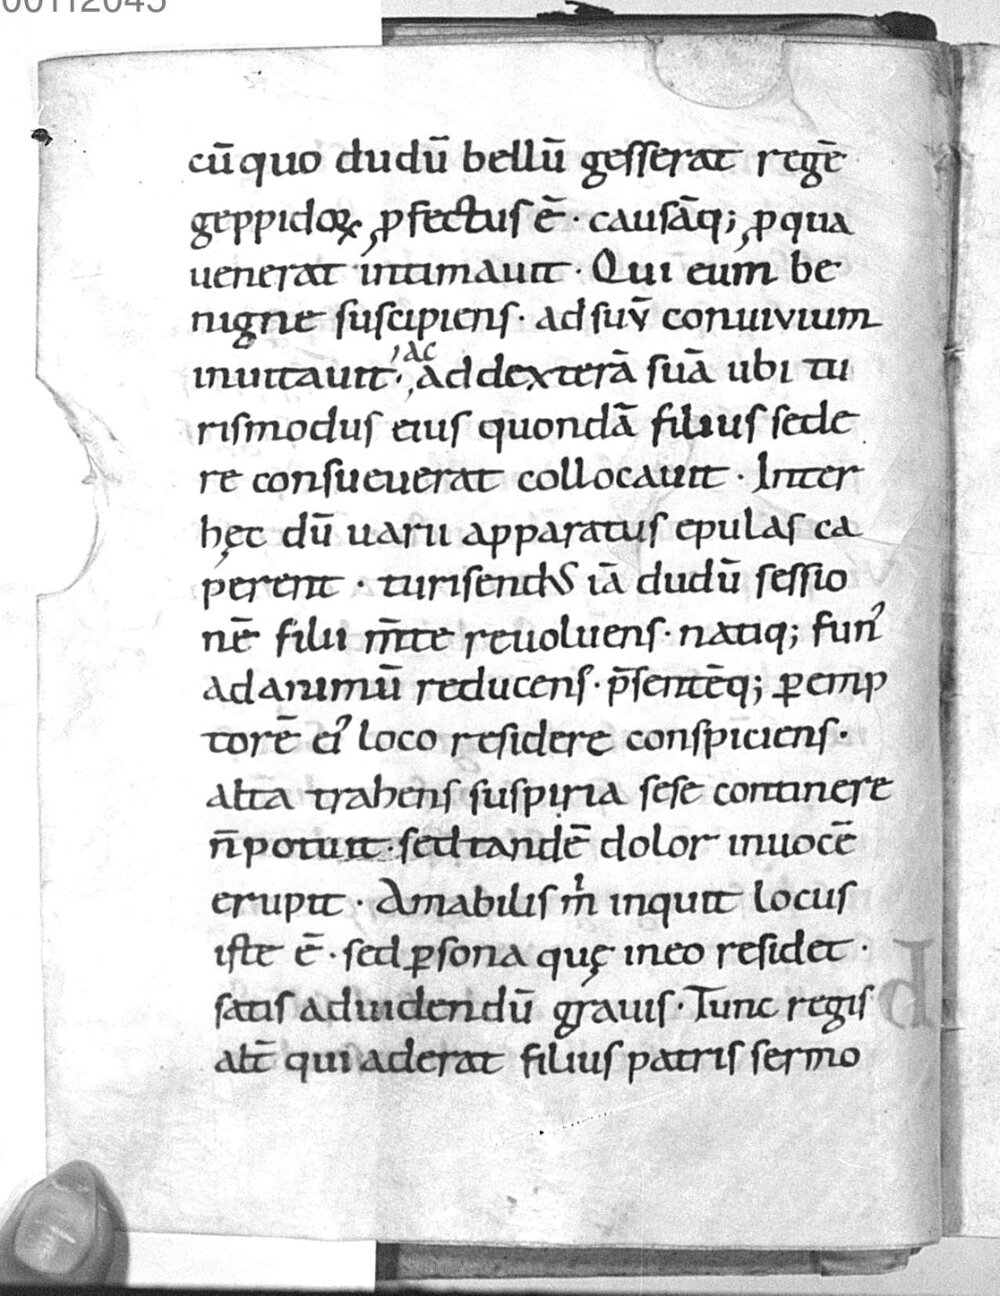 00112045
cū quo dudū bellū gesserat regē
geppidoꝝ, ꝓfectus ē· causāq; ꝓ qua
uenerat intimauit· Qui eum be
nigne suscipiens· ad suv̄ conuivium
inuitauit·, ac ad dexterā suā ubi tu
rismodus eius quondā filius sede
re consueuerat collocauit· Inter
hęc dū uarii apparatus epulas ca
perent· turisendus iā dudū sessio
nē filii m̄te reuoluens· natiq; fun᾽
ad animū reducens· p̄sentēq; ꝑemp
torē ei᾽ loco residere conspiciens·
alt̄a trahens suspiria sese continere
n̄ potuit· sed tandē dolor in uocē
erupit· Amabilis m̍ inquit locus
iste ē· sed ꝑsona quę in eo residet·
satis ad uidendū grauis· Tunc regis
alt̄ qui aderat filius patris sermo